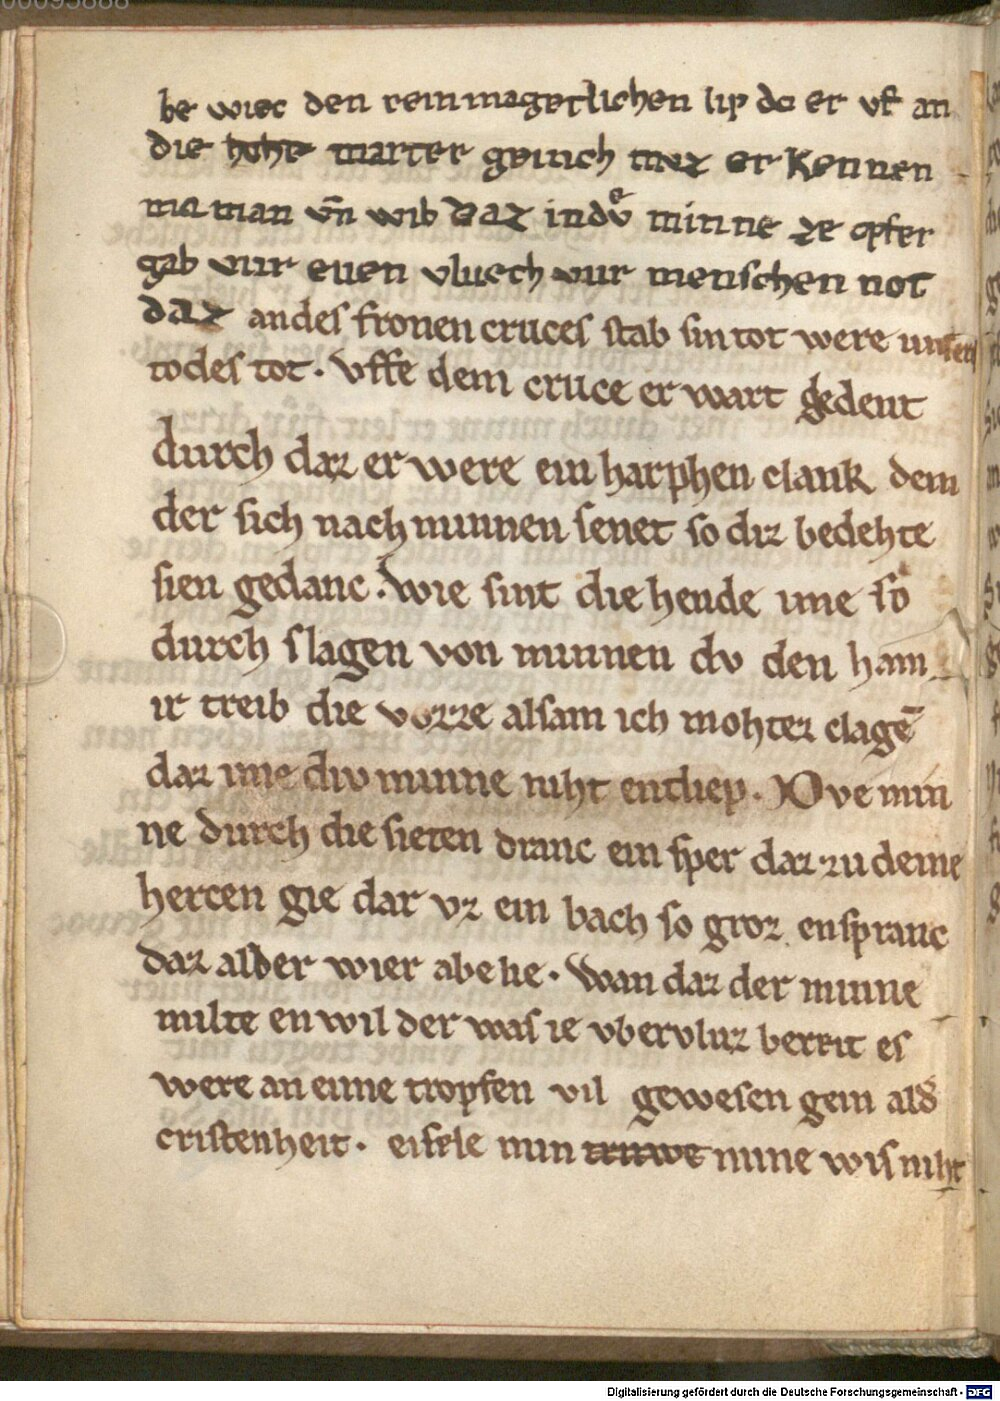 00095888
be wiec den reinmagetlichen lip do er vf an
die hohe marter gpinch mvz er kennen
ma man vn̄ wib daz indvͤ minne ze opfer
gab vur euen vluech vur menschen not
daz andes fronen cruces stab sin tot were unsers
todes tot · Vffe dem cruce er wart gedent
durch daz er were ein harphen clank dem
der sich nach minnen senet so diz bedehte
sien gedanc · Wie sint die hende ime so
durch slagen von minnen dv den ham
ir treib die vozze alsam ich mohtez clagē
daz ime div minne niht entliep · Owe min
ne durch die sieten dranc ein sper daz zu deme
hercen gie dar vz ein bach so groz enspranc
daz alder wier abe lie · Wan daz der minne
milte en wil der was ie vbervluz berkit es
were an eime tropfen vil gewesen gein alď
cristenheit · eifele min truwe mine wis niht
Digitalisierung gefördert durch die Deutsche Forschungsgemeinschaft - DFG